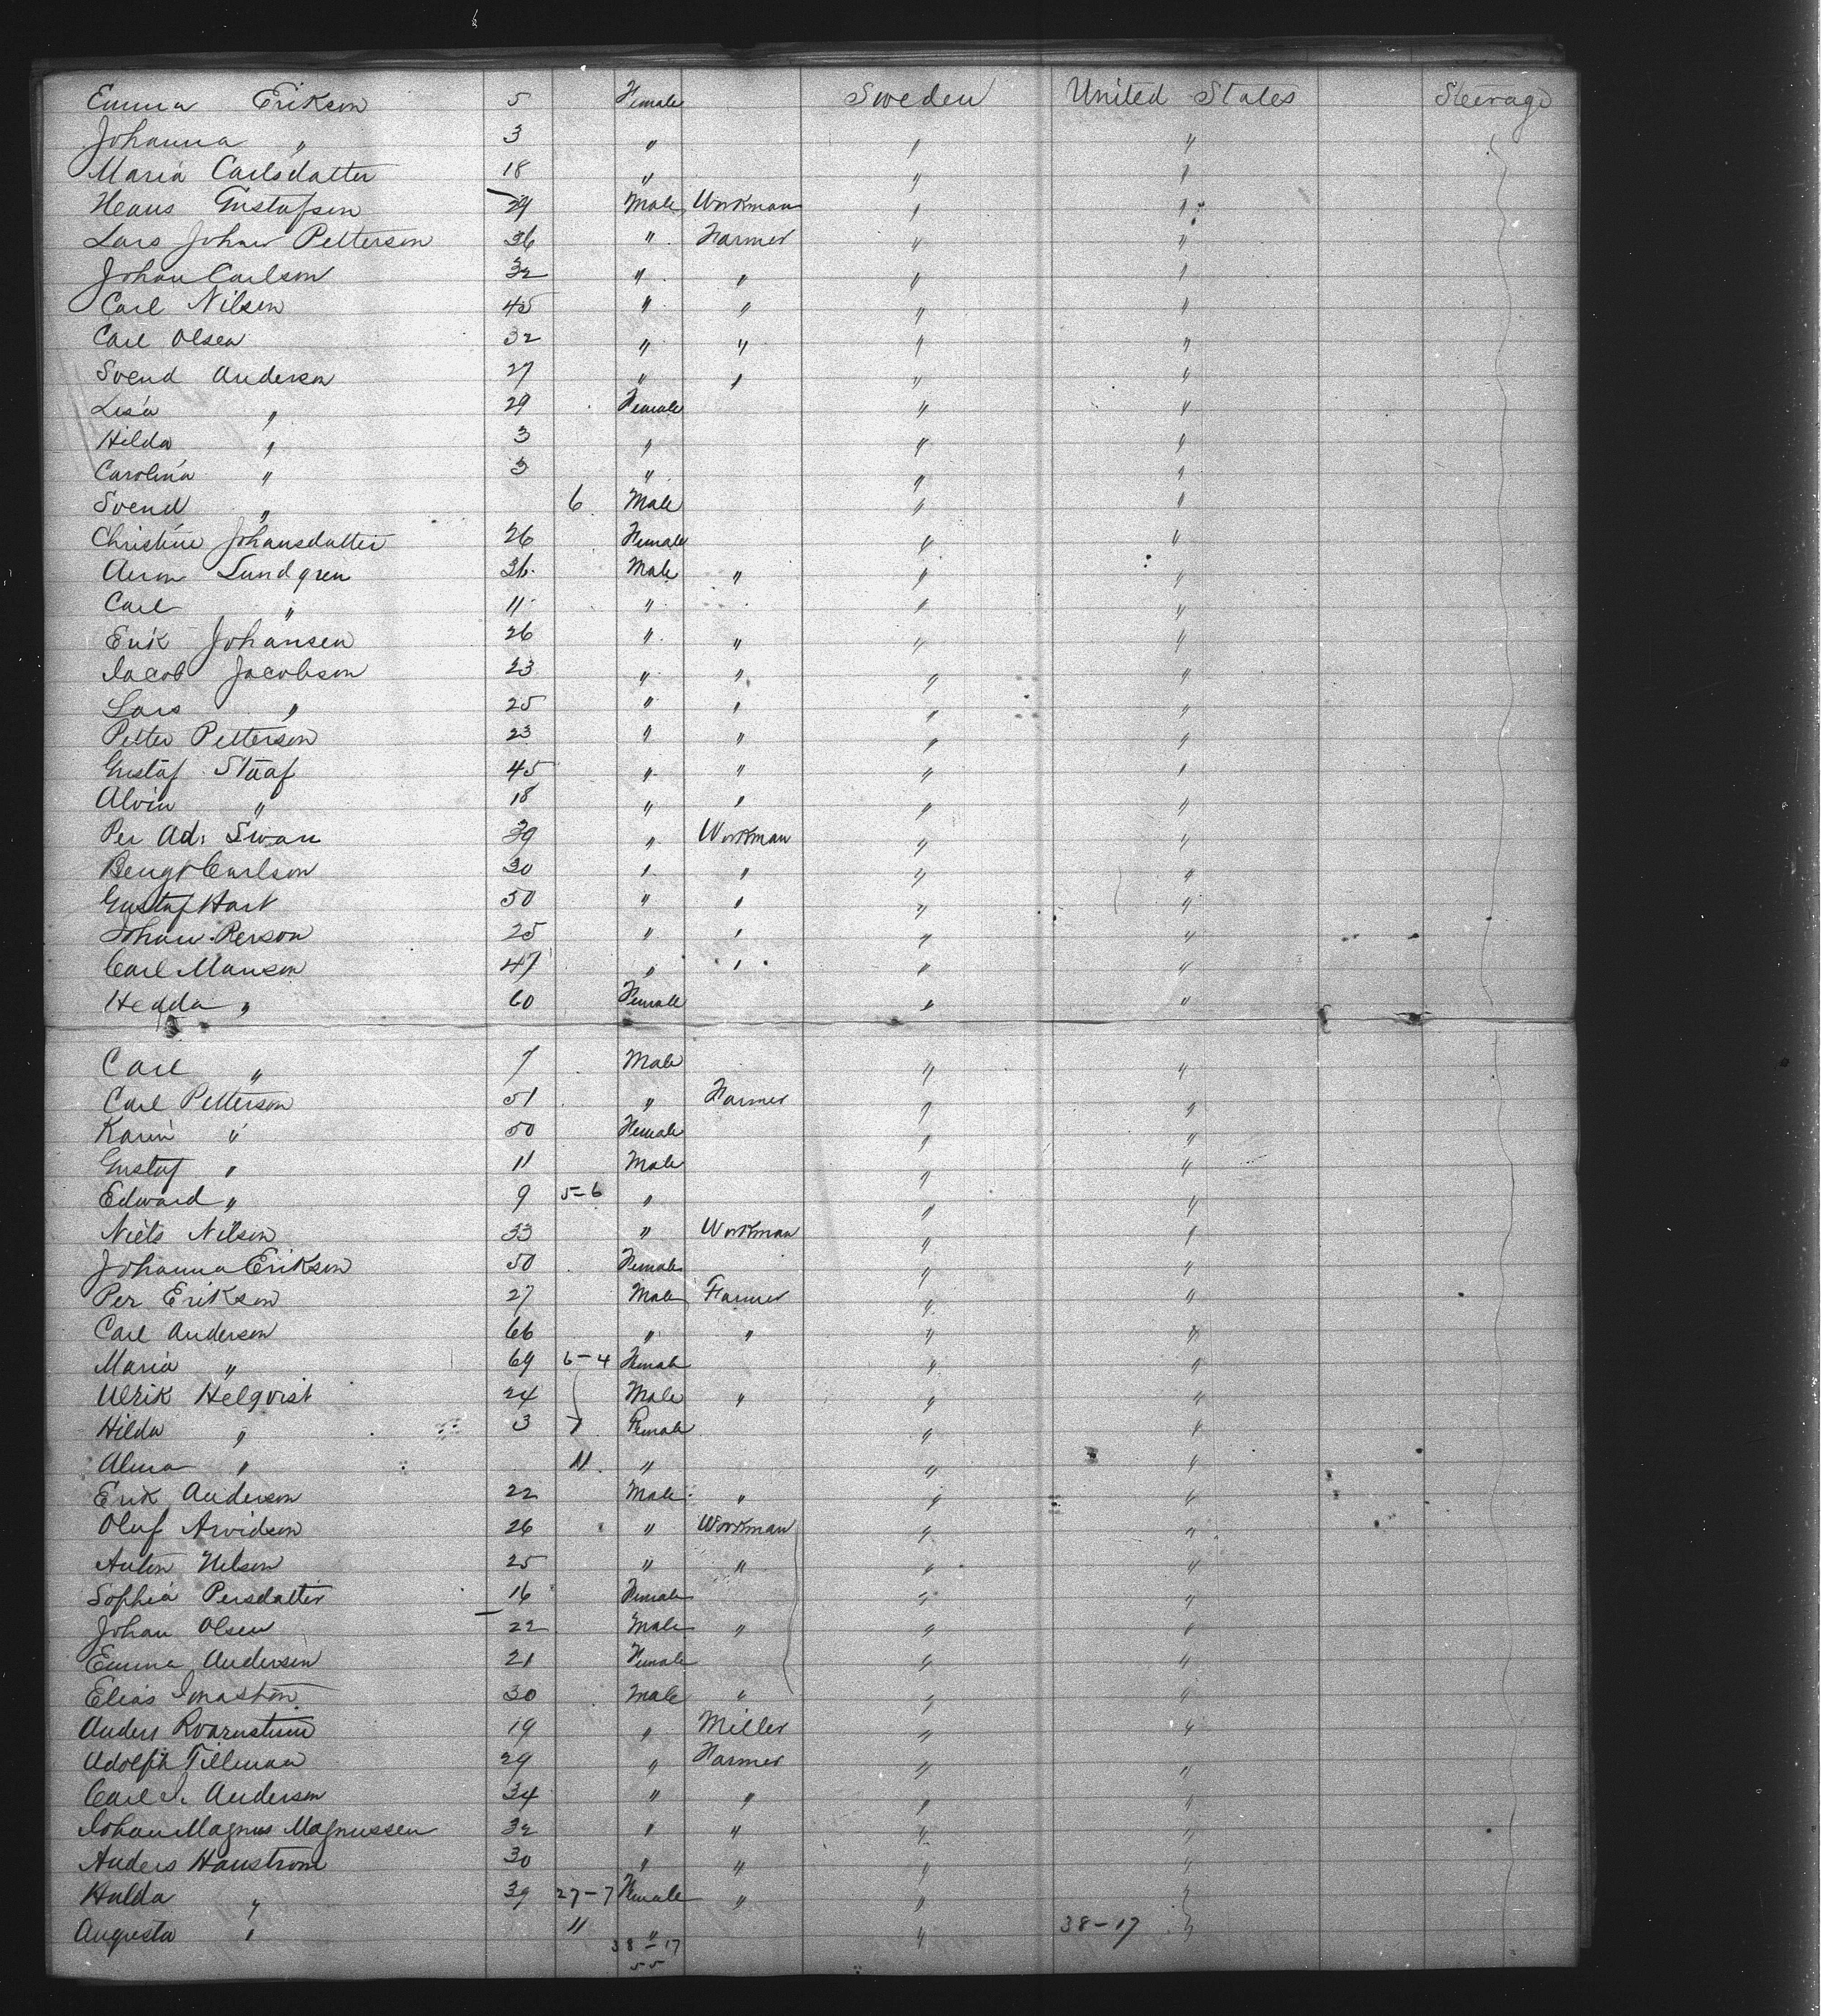 Emma Erikson 5 Female Sweden United States Steerage
Johanna " 3 " " "
Maria Carlsdatter 18 " " "
Gustafson 29 Male Workman " "
Lars Johan Petterson 36 " Farmer " "
Johan Carlson 32 " " " "
Carl Nilsen 45 " " " "
Carl Olsen 32 " " " "
Svend Andersen 27 " " " "
Lisa " 29 Female " "
Hilda " 3 " " "
Carolina " 3 " " "
Svend " 6 Male " "
Christine Johansdatter 26 Female " "
Aron Lundgren 36 Male " " "
Carl " 11 " " "
Erik Johansen 26 " " " "
Jacob Jacobson 23 " " " "
Lars " 25 " " " "
Petter Petterson 23 " " " "
Gustaf Staaf 45 " " " "
Alvin " 18 " " " "
Per Ad. Swan 39 " Workman " "
Bengt Carlson 30 " " " "
Gustaf Hart 50 " " " "
Johan Person 25 " " " "
Carl Manson 47 " " " "
Hedda " 60 Female " "
Carl " 7 Male " "
Carl Petterson 51 " Farmer " "
Karin " 50 Female " "
Gustaf " 11 Male " "
Edward " 9 5-6 " " "
Niels Nilson 33 " Workman " "
Johanna Erikson 50 Female " "
Per Erikson 27 Male Farmer " "
Carl Anderson 66 " " " "
Maria " 69 6-4 Female " "
Ulrik Helqvist 24 Male " " "
Hilda " 3 Female " "
Alma " 11 " " "
Erik Anderson 22 Male " " "
Oluf Arvidson 26 " Workman " "
Anton Nelson 25 " " " "
Sophia Persdatter 16 Female " "
Johan Olsen 22 Male " " "
Emma Andersen 21 Female " "
Elias 30 Male " " "
Anders 19 " Miller " "
Adolph Tillman 29 " Farmer " "
Carl J. Anderson 34 " " " "
Johan Magnus Magnussen 32 " " " "
Anders Hanstrom 30 " " " "
Hulda " 39 27-7 Female " " "
Augusta " 11 " " 38-17 "
38-17
55